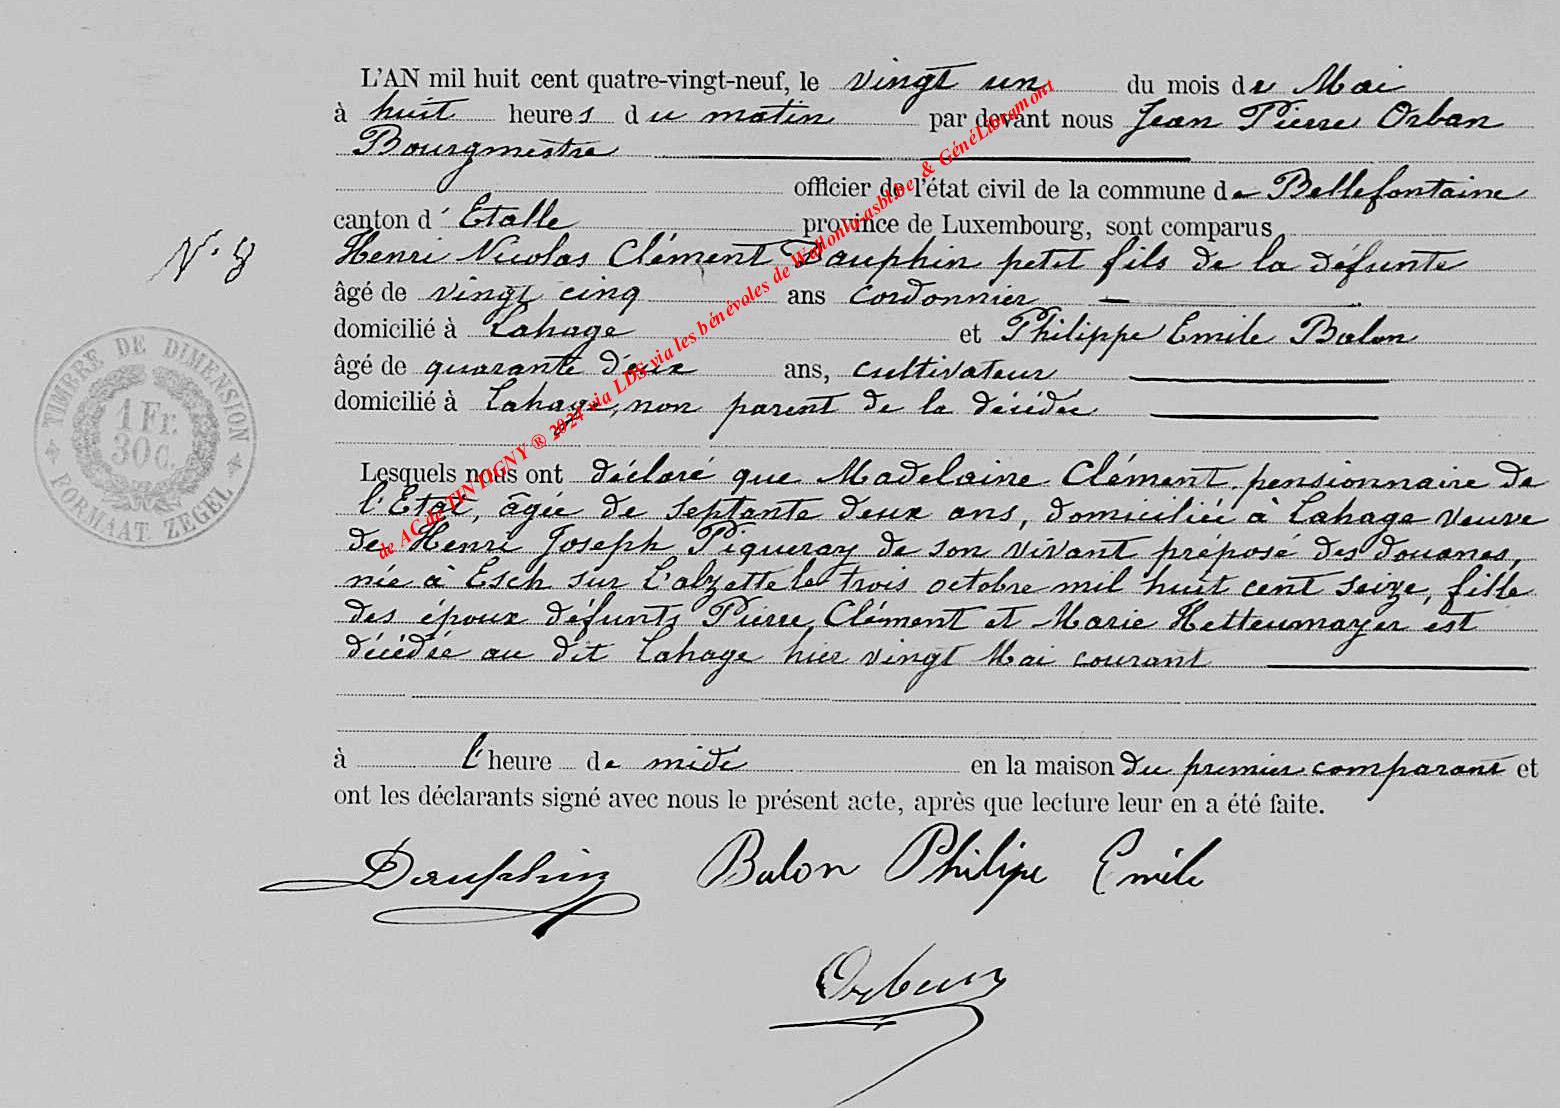 L'AN mil huit cent quatre-vingt-neuf, le vingt un du mois de Mai
à huit heures du matin par devant nous Jean Pierre Orban
Bourgmestre
officier de l'état civil de la commune de Bellefontaine
canton d'Etalle province de Luxembourg, sont comparus
N. 8
Henri Nicolas Clément Dauphin petit fils de la défunte
âgé de vingt cinq ans cordonnier
domicilié à Lahage et Philippe Emile Balon
âgé de quarante deux ans, cultivateur
domicilié à Lahage, non parent de la décédée
Lesquels nous ont déclaré que Madelaine Clément, pensionnaire de
l'Etat, âgée de septante deux ans, domiciliée à Lahage veuve
de Henri Joseph Piqueray de son vivant préposé des douanes,
née à Esch sur l'alzette le trois octobre mil huit cent seize, fille
des époux défunts Pierre Clément et Marie Hetteumayer est
décédée au dit Lahage hier vingt Mai courant
à l'heure de midi en la maison du premier comparant et
ont les déclarants signé avec nous le présent acte, après que lecture leur en a été faite.
Dauphin Balon Philipe Emile
Orban
TIMBRE DE DIMENSION
1 Fr.
30 C.
FORMAAT ZEGEL
de AC de TINTIGNY ® 2024 via LDS via les bénévoles de Wallonia-asbl.be & GénéLibramont